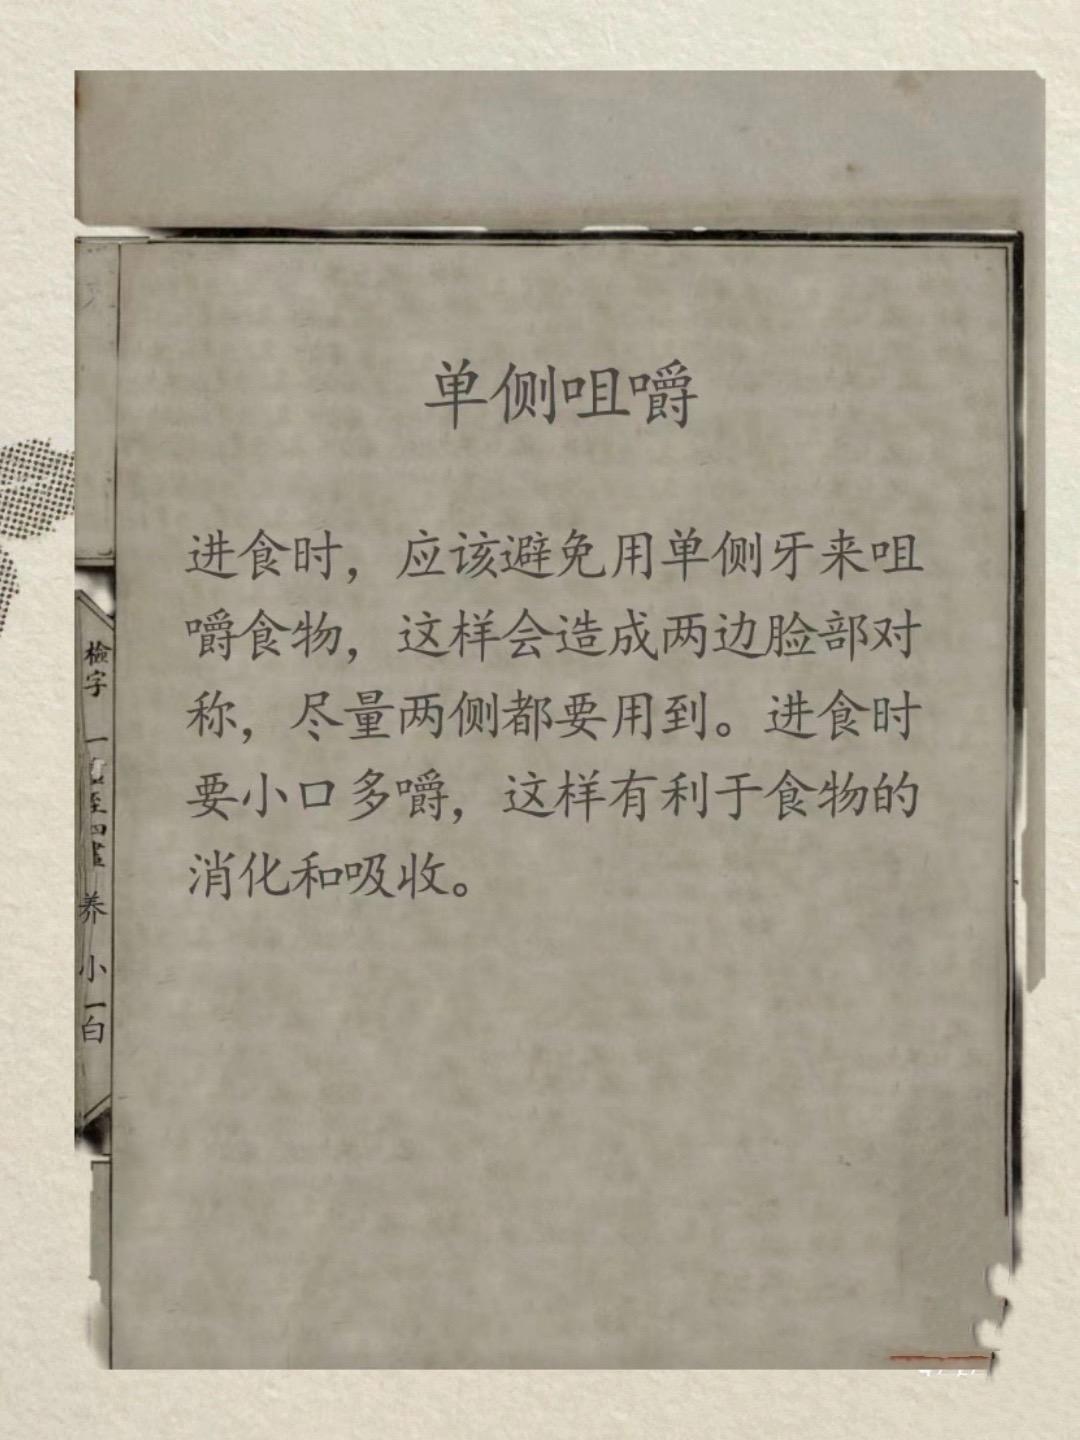 单侧咀嚼
进食时，应该避免用单侧牙来咀
嚼食物，这样会造成两边脸部对
称，尽量两侧都要用到。进食时
要小口多嚼，这样有利于食物的
消化和吸收。
檢字
一
至四畫
养
小
白